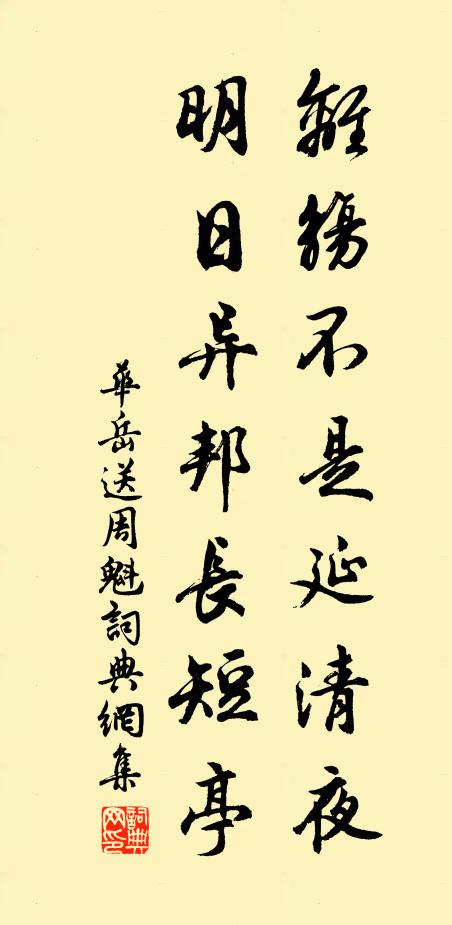 離觴不是延清夜
明日异邦長短亭
華岳送周魁詞典網集
詞典网印